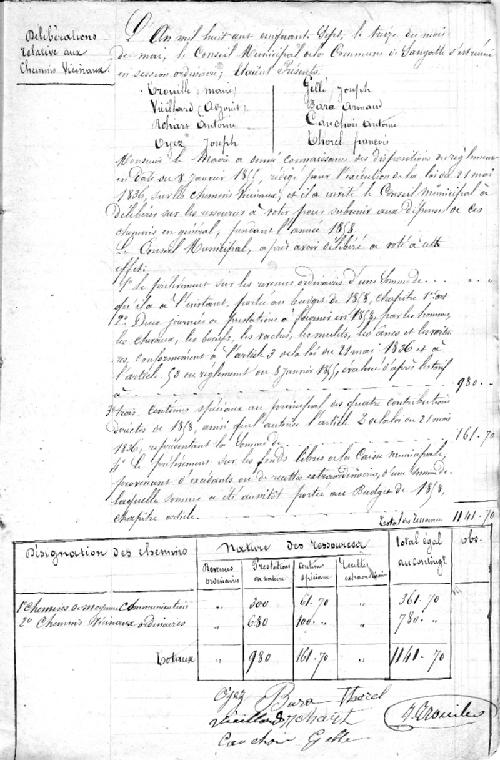 Délibérations
relative aux
Chemins Vicinaux
L'An mil huit cent cinquante Sept, le treize du mois
de mai, le Conseil Municipal de la Commune de s'est réuni
en session ordinaire; Etaient Présents
Trouille, maire Gellé Joseph
Vieillard (Auguste) Bara Arnaud
Antoine Antoine
Oyez Joseph Thorel françois
Monsieur le Maire a donné connaissance des dispositions du règlement
en date du 8 Janvier 1855, rédigé pour l'exécution de la loi du 21 mai
1836, sur les chemins Vicinaux, et il a invité le Conseil municipal à
délibérer sur les ressources à voter pour subvenir aux dépenses de ces
chemins en général, pendant l'année 1858
Le Conseil Municipal, après avoir délibéré a voté à cet
effet;
1° le prélèvement sur les revenus ordinaires d'une Somme de . . . „ „
qui a été à l'instant portée au budget de 1858, chapitre 1er art
2° Deux journées de prestations à fournir en 1858, par les hommes,
les chevaux, les bœufs, les vaches, les mulets, les ânes et les voitu
res, conformément à l'article 3 de la loi du 21 mai 1836 et à
l'article 53 du règlement du 8 janvier 1855, évaluées d'après le tarif
à 980 . „
3° trois centimes spéciaux au principal des quatre contributions
directes de 1858, ainsi que l'autorise l'article 2 de la loi du 21 mai
1836, représentant la Somme de 161 . 70
4° Le prélèvement sur les fonds libres de la Caisse municipale,
provenant d'excédants ou de recettes extraordinaires, d'une Somme de
laquelle somme a été aussitôt portée au Budget de 1858,
chapitre article.
Total des ressources 1141 . 70
Désignation des chemins Nature des Ressources Total égal au contingt. obs.
Revenus ordinaires Prestations en nature Centimes spéciaux Recettes extraordinaires
1° Chemins de moyenne Communication „ 300 61.70 „ 361.70
2° Chemins Vicinaux ordinaires „ 680 100. „ „ 780. „
Totaux „ 980 161,70 „ 1141.70
Oyez Bara Thorel
Vieillard Trouille
Gellé